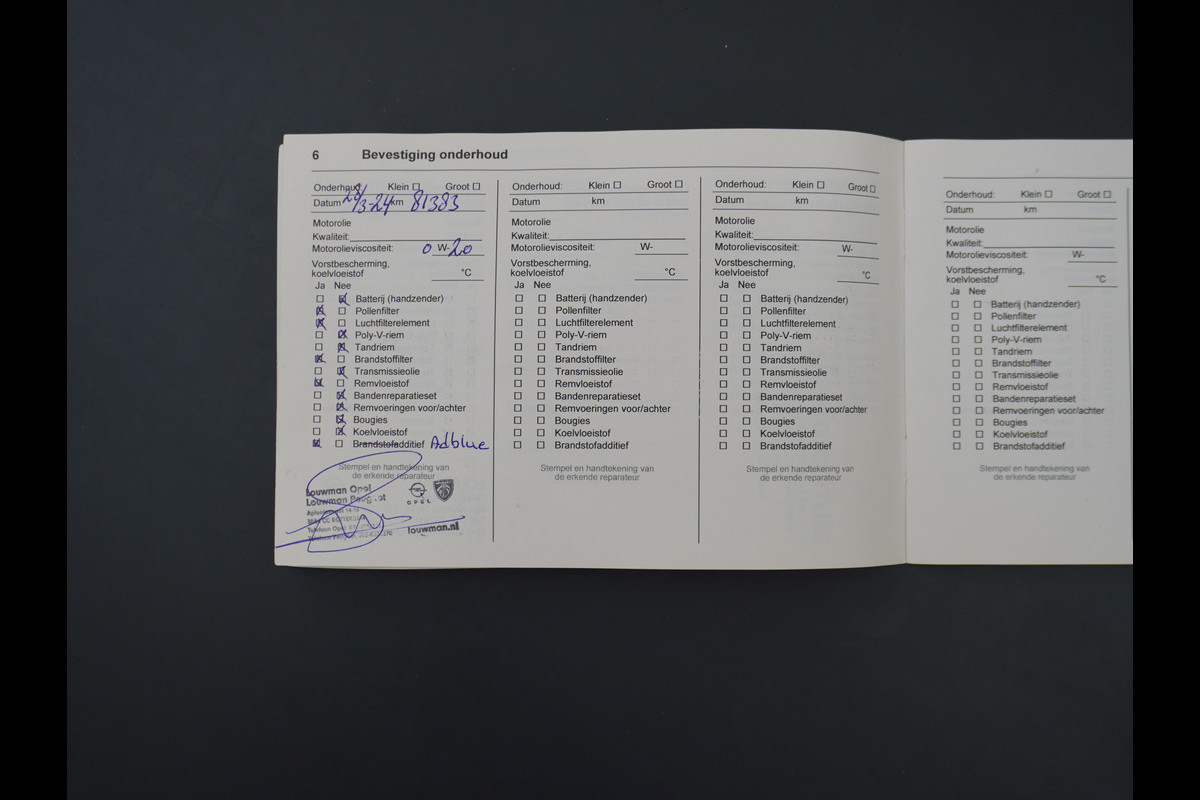 6 Bevestiging onderhoud
Onderhoud: Klein ☐ Groot ☐
Datum 3-24 km 81383
Motorolie
Kwaliteit:
Motorolieviscositeit: 0 W-20
Vorstbescherming,
koelvloeistof °C
Ja Nee
Batterij (handzender)
Pollenfilter
Luchtfilterelement
Poly-V-riem
Tandriem
Brandstoffilter
Transmissieolie
Remvloeistof
Bandenreparatieset
Remvoeringen voor/achter
Bougies
Koelvloeistof
Brandstofadditief Adblue
Stempel en handtekening van
de erkende reparateur
Louwman Opel
Louwman Peugeot
OPEL
louwman.nl
Onderhoud: Klein ☐ Groot ☐
Datum km
Motorolie
Kwaliteit:
Motorolieviscositeit: W-
Vorstbescherming,
koelvloeistof °C
Ja Nee
☐ ☐ Batterij (handzender)
☐ ☐ Pollenfilter
☐ ☐ Luchtfilterelement
☐ ☐ Poly-V-riem
☐ ☐ Tandriem
☐ ☐ Brandstoffilter
☐ ☐ Transmissieolie
☐ ☐ Remvloeistof
☐ ☐ Bandenreparatieset
☐ ☐ Remvoeringen voor/achter
☐ ☐ Bougies
☐ ☐ Koelvloeistof
☐ ☐ Brandstofadditief
Stempel en handtekening van
de erkende reparateur
Onderhoud: Klein ☐ Groot ☐
Datum km
Motorolie
Kwaliteit:
Motorolieviscositeit: W-
Vorstbescherming,
koelvloeistof °C
Ja Nee
☐ ☐ Batterij (handzender)
☐ ☐ Pollenfilter
☐ ☐ Luchtfilterelement
☐ ☐ Poly-V-riem
☐ ☐ Tandriem
☐ ☐ Brandstoffilter
☐ ☐ Transmissieolie
☐ ☐ Remvloeistof
☐ ☐ Bandenreparatieset
☐ ☐ Remvoeringen voor/achter
☐ ☐ Bougies
☐ ☐ Koelvloeistof
☐ ☐ Brandstofadditief
Stempel en handtekening van
de erkende reparateur
Onderhoud: Klein ☐ Groot ☐
Datum km
Motorolie
Kwaliteit:
Motorolieviscositeit: W-
Vorstbescherming,
koelvloeistof °C
Ja Nee
☐ ☐ Batterij (handzender)
☐ ☐ Pollenfilter
☐ ☐ Luchtfilterelement
☐ ☐ Poly-V-riem
☐ ☐ Tandriem
☐ ☐ Brandstoffilter
☐ ☐ Transmissieolie
☐ ☐ Remvloeistof
☐ ☐ Bandenreparatieset
☐ ☐ Remvoeringen voor/achter
☐ ☐ Bougies
☐ ☐ Koelvloeistof
☐ ☐ Brandstofadditief
Stempel en handtekening van
de erkende reparateur